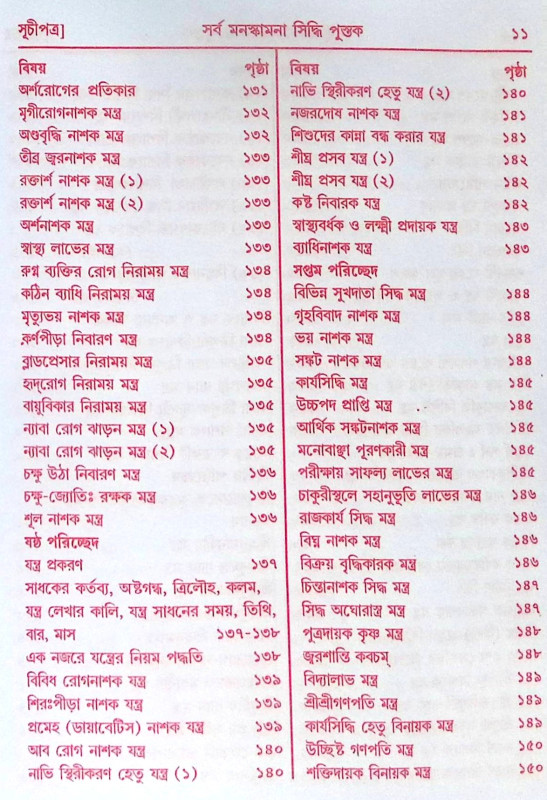 সূচীপত্র] সর্ব মনস্কামনা সিদ্ধি পুস্তক ১১
বিষয় পৃষ্ঠা
অর্শরোগের প্রতিকার ১৩১
মৃগীরোগনাশক মন্ত্র ১৩২
অণ্ডবৃদ্ধি নাশক মন্ত্র ১৩২
তীব্র জ্বরনাশক মন্ত্র ১৩৩
রক্তার্শ নাশক মন্ত্র (১) ১৩৩
রক্তার্শ নাশক মন্ত্র (২) ১৩৩
অর্শনাশক মন্ত্র ১৩৩
স্বাস্থ্য লাভের মন্ত্র ১৩৩
রুগ্ন ব্যক্তির রোগ নিরাময় মন্ত্র ১৩৪
কঠিন ব্যাধি নিরাময় মন্ত্র ১৩৪
মৃত্যুভয় নাশক মন্ত্র ১৩৪
কর্ণপীড়া নিবারণ মন্ত্র ১৩৪
ব্লাডপ্রেসার নিরাময় মন্ত্র ১৩৫
হৃদ্‌রোগ নিরাময় মন্ত্র ১৩৫
বায়ুবিকার নিরাময় মন্ত্র ১৩৫
ন্যাবা রোগ ঝাড়ন মন্ত্র (১) ১৩৫
ন্যাবা রোগ ঝাড়ন মন্ত্র (২) ১৩৫
চক্ষু উঠা নিবারণ মন্ত্র ১৩৬
চক্ষু-জ্যোতিঃ রক্ষক মন্ত্র ১৩৬
শূল নাশক মন্ত্র ১৩৬
ষষ্ঠ পরিচ্ছেদ
যন্ত্র প্রকরণ ১৩৭
সাধকের কর্তব্য, অষ্টগন্ধ, ত্রিলৌহ, কলম,
যন্ত্র লেখার কালি, যন্ত্র সাধনের সময়, তিথি,
বার, মাস ১৩৭-১৩৮
এক নজরে যন্ত্রের নিয়ম পদ্ধতি ১৩৮
বিবিধ রোগনাশক যন্ত্র ১৩৯
শিরঃপীড়া নাশক যন্ত্র ১৩৯
প্রমেহ (ডায়াবেটিস) নাশক যন্ত্র ১৩৯
আব রোগ নাশক যন্ত্র ১৪০
নাভি স্থিরীকরণ হেতু যন্ত্র (১) ১৪০
বিষয় পৃষ্ঠা
নাভি স্থিরীকরণ হেতু যন্ত্র (২) ১৪০
নজরদোষ নাশক যন্ত্র ১৪১
শিশুদের কান্না বন্ধ করার যন্ত্র ১৪১
শীঘ্র প্রসব যন্ত্র (১) ১৪২
শীঘ্র প্রসব যন্ত্র (২) ১৪২
কষ্ট নিবারক যন্ত্র ১৪২
স্বাস্থ্যবর্ধক ও লক্ষ্মী প্রদায়ক যন্ত্র ১৪৩
ব্যাধিনাশক যন্ত্র ১৪৩
সপ্তম পরিচ্ছেদ
বিভিন্ন সুখদাতা সিদ্ধ মন্ত্র ১৪৪
গৃহবিবাদ নাশক মন্ত্র ১৪৪
ভয় নাশক মন্ত্র ১৪৪
সঙ্কট নাশক মন্ত্র ১৪৪
কার্যসিদ্ধি মন্ত্র ১৪৫
উচ্চপদ প্রাপ্তি মন্ত্র ১৪৫
আর্থিক সঙ্কটনাশক মন্ত্র ১৪৫
মনোবাঞ্ছা পূরণকারী মন্ত্র ১৪৫
পরীক্ষায় সাফল্য লাভের মন্ত্র ১৪৫
চাকুরীস্থলে সহানুভূতি লাভের মন্ত্র ১৪৬
রাজকার্য সিদ্ধ মন্ত্র ১৪৬
বিঘ্ন নাশক মন্ত্র ১৪৬
বিক্রয় বৃদ্ধিকারক মন্ত্র ১৪৬
চিন্তানাশক সিদ্ধ মন্ত্র ১৪৭
সিদ্ধ অঘোরাস্ত্র মন্ত্র ১৪৭
পুত্রদায়ক কৃষ্ণ মন্ত্র ১৪৮
জ্বরশান্তি কবচম্ ১৪৮
বিদ্যালাভ মন্ত্র ১৪৯
শ্রীশ্রীগণপতি মন্ত্র ১৪৯
কার্যসিদ্ধি হেতু বিনায়ক মন্ত্র ১৪৯
উচ্ছিষ্ট গণপতি মন্ত্র ১৫০
শক্তিদায়ক বিনায়ক মন্ত্র ১৫০